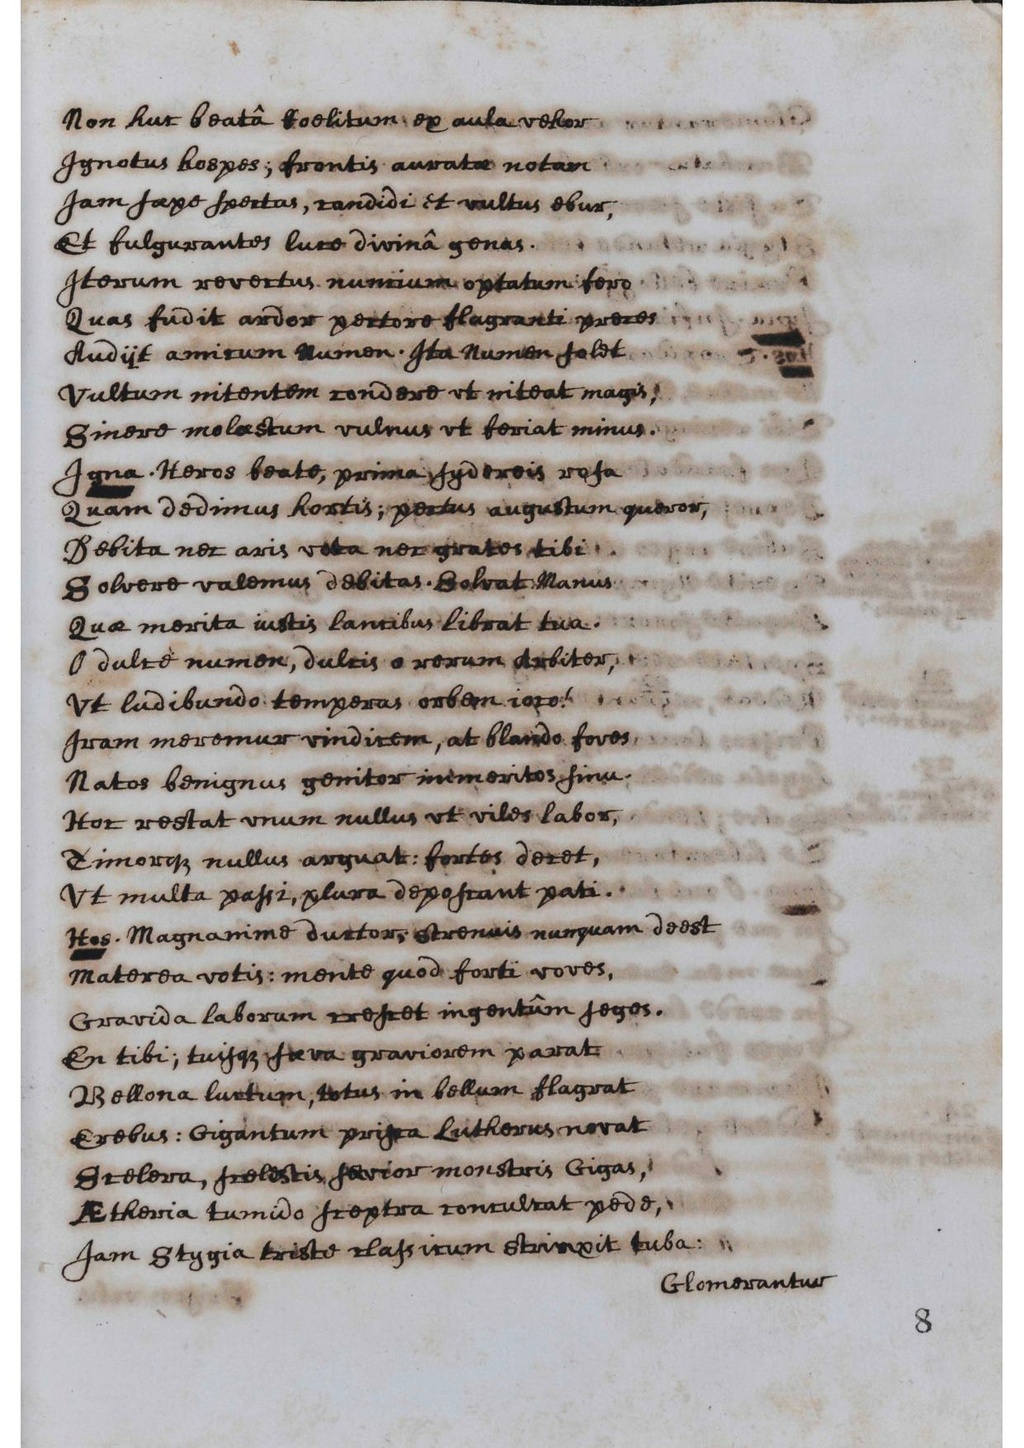 Non huc beatâ coelitum ex aula vehor
Ignotus hospes; frontis auratæ notam
Jam sæpe spectas, candidi et vultus ebur,
Et fulgurantes luce divinâ genas.
Iterum revectus nuncium optatum fero
Quas fudit ardor pectore flagranti preces
Audijt amicum Numen. Ita Numen solet
Vultum nitentem condere vt niteat magis,
Sinere molestum vulnus vt feriat minus.
Igna. Heros beate, prima sydereis rosa
Quam dedimus hortis; pectus augustum queror,
Debita nec aris vota nec grates tibi
Solvere valemus debitas. Solvat Manus
Quæ merita iustis lancibus librat tua.
O dulce numen, dulcis o rerum Arbiter,
Vt ludibundo temperas orbem ioco!
Iram meremur vindicem, at blando foves
Natos benignus genitor immeritos sinu.
Hoc restat vnum nullus vt viles labor,
Timorq; nullus arguat: fortes decet,
Vt multa passi, plura deposcant pati.
Hos. Magnanime ductor, strenuis nunquam deest
Materea votis: mente quod forti voves,
Gravida laborum crescet ingentûm seges.
En tibi; tuisq; sæva graviorem parat
Bellona luctum, totus in bellum flagrat
Erebus: Gigantum prisca Lutherus novat
Scelera, scelestis sævior monstris Gigas,
Ætheria tumido sceptra conculcat pede,
Jam Stygia triste classicum strinxit tuba:
Glomerantur
8